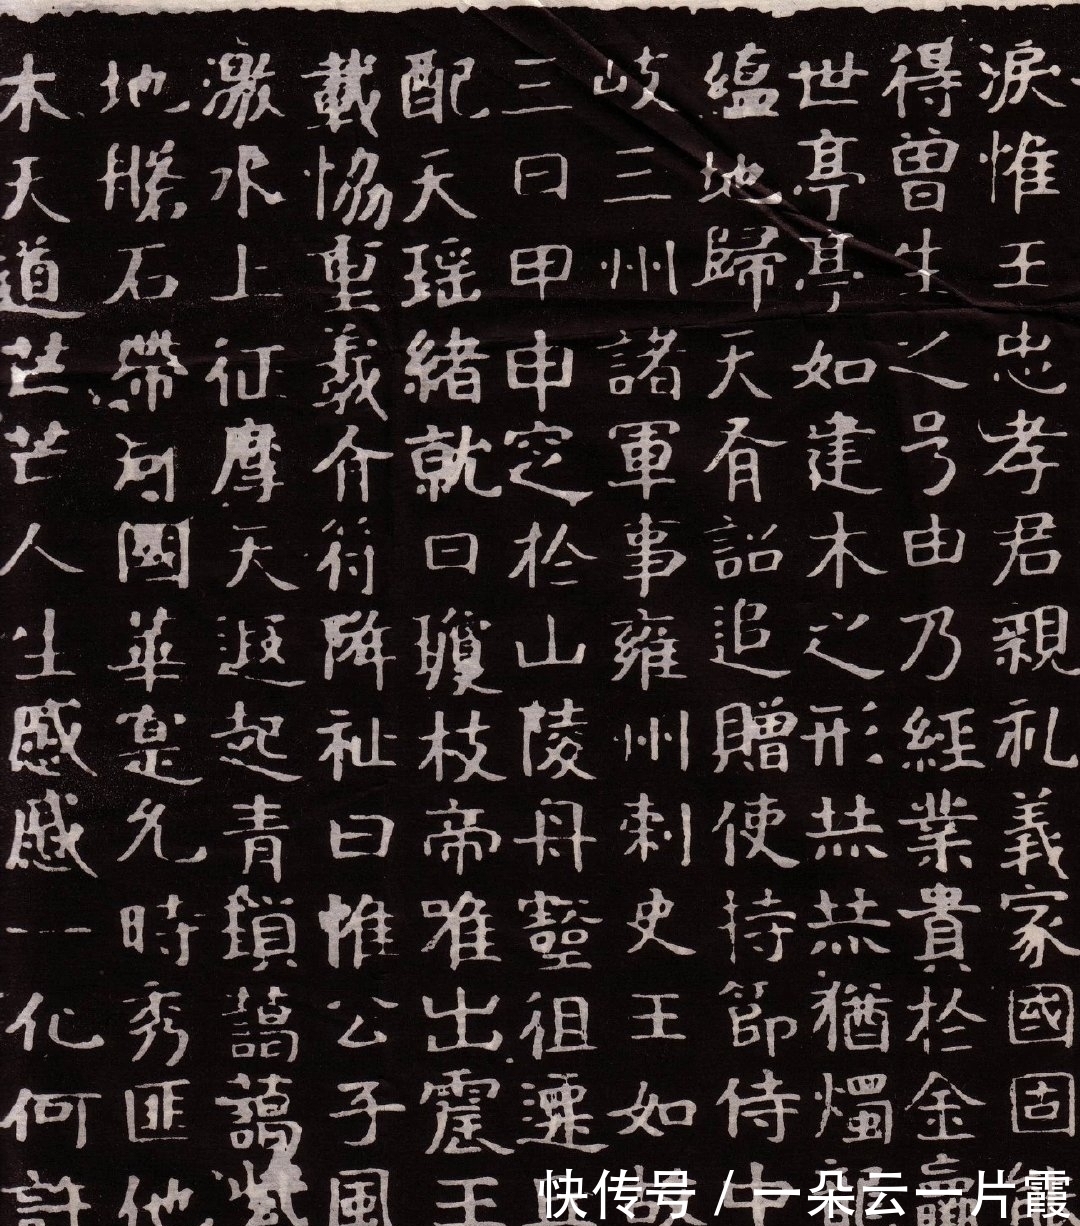 淚惟王忠孝君親礼義家國固
得曾生之号由乃經業貴於金
世亭亭如建木之形赫赫猶燭
蘊地歸天有詔追贈使持節侍中
岐三州諸軍事雍州刺史王如故
三日甲申窆於山陵丹壑徂遷
配天瑶緒就日瓊枝帝唯出震王
載協重義介符降祉曰惟公子風
激水上征摩天遐起青鎖藹藹紫
地勝石帶河國華寔允時秀匪他
木天道芒芒人生慼慼一化何許
快传号 / 一朵云一片霞